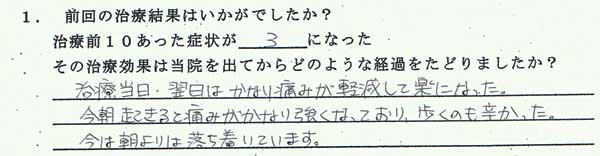 1. 前回の治療結果はいかがでしたか？
治療前１０あった症状が 3 になった
その治療効果は当院を出てからどのような経過をたどりましたか？
治療当日・翌日は かなり痛みが軽減して楽になった。
今朝起きると痛みがかなり強くなっており、歩くのも辛かった。
今は朝よりは落ち着いています。